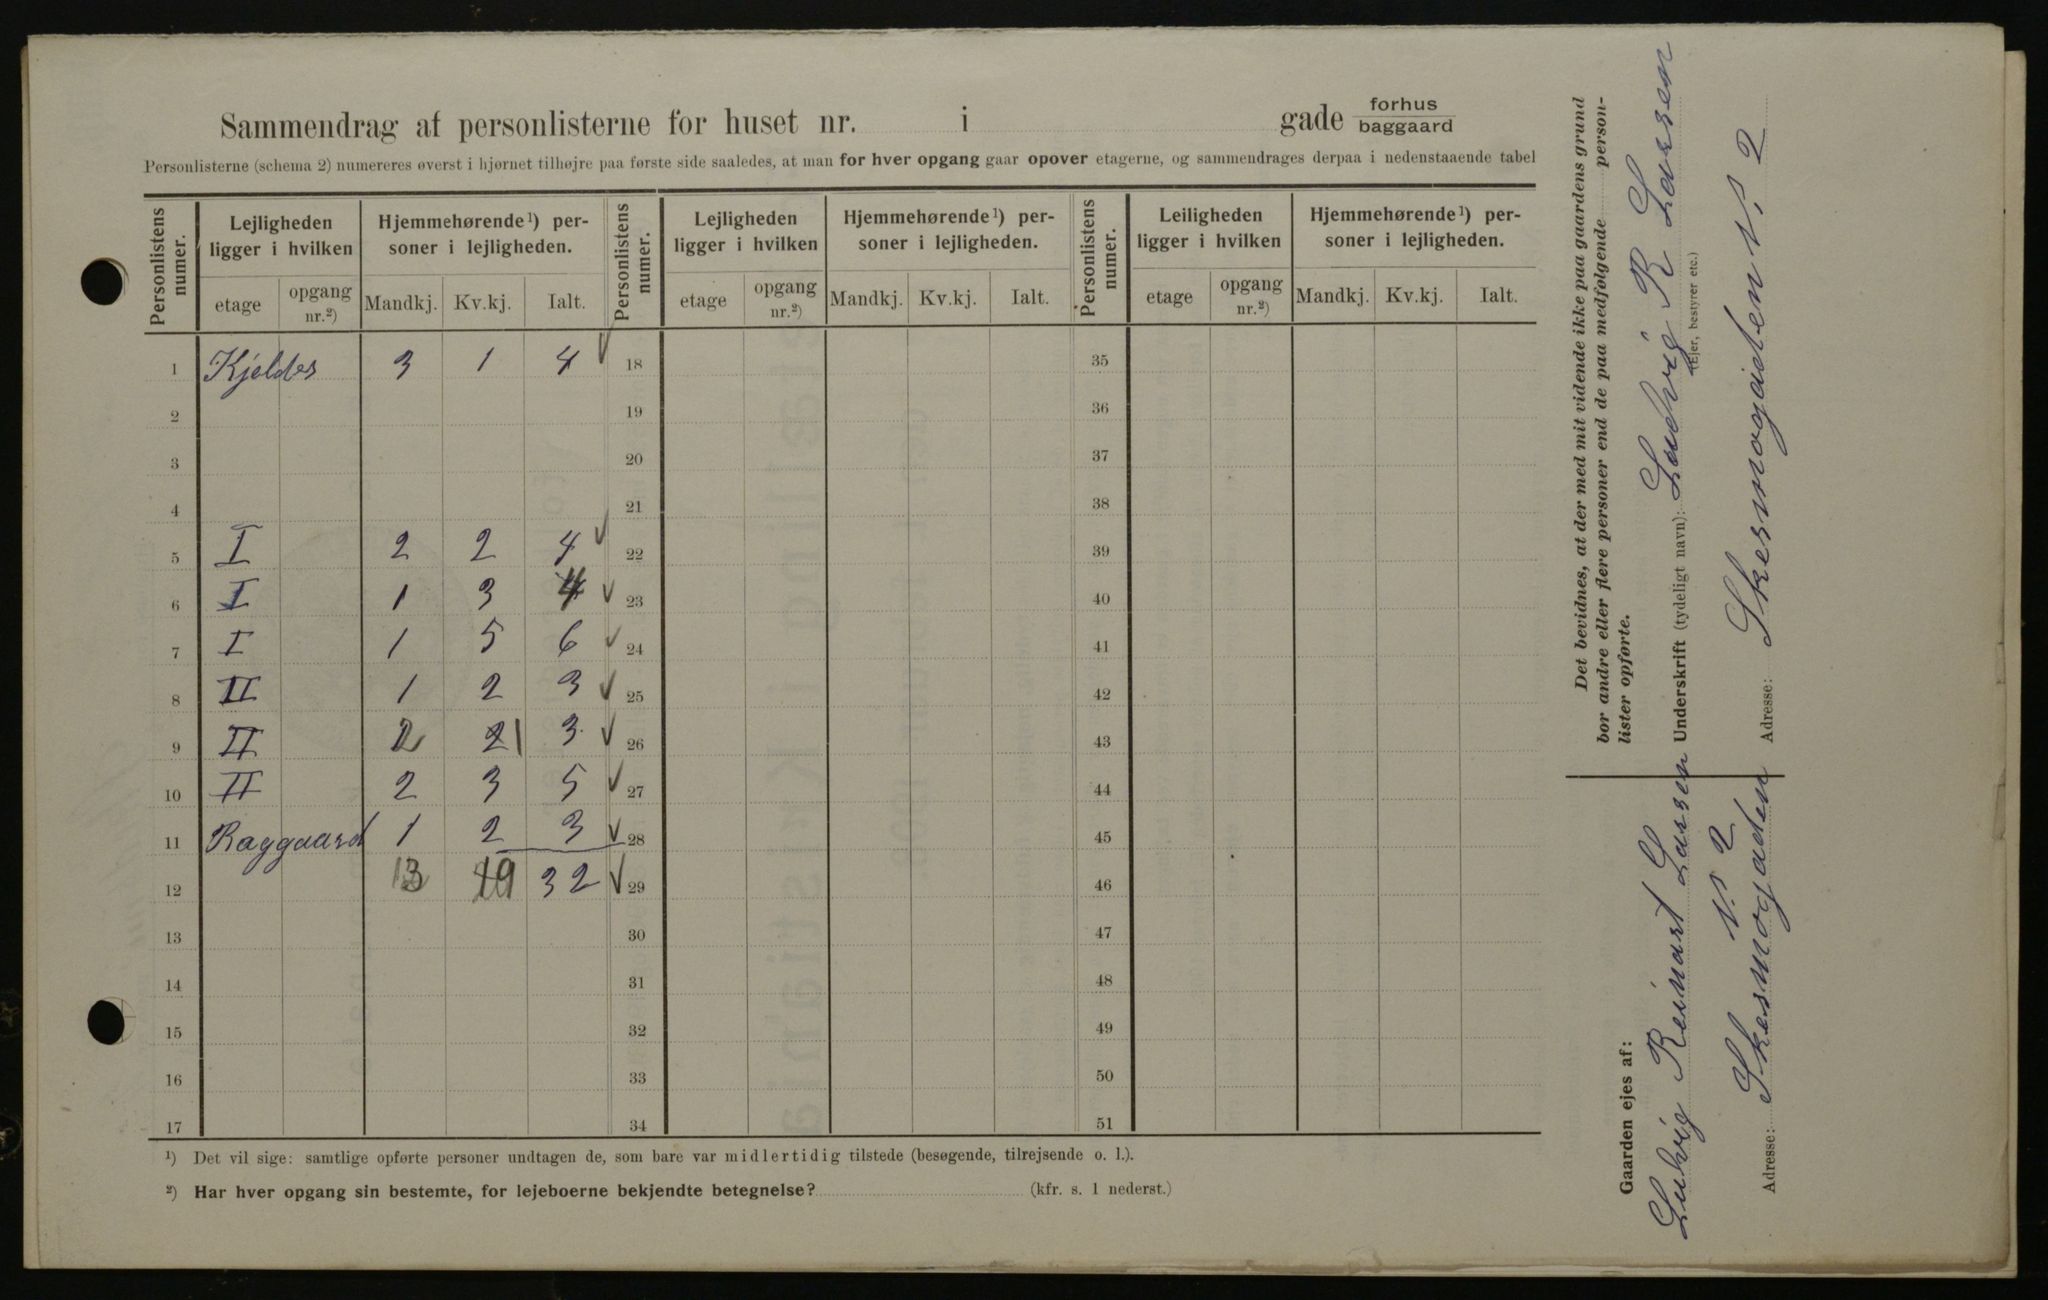 Sammendrag af personlisterne for huset nr. i gade forhus baggaard
Personlisterne (schema 2) numereres øverst i hjørnet tilhøjre paa første side saaledes, at man for hver opgang gaar opover etagerne, og sammendrages derpaa i nedenstaaende tabel
Personlistens numer. Lejligheden ligger i hvilken Hjemmehørende¹) personer i lejligheden. Personlistens numer. Lejligheden ligger i hvilken Hjemmehørende¹) personer i lejligheden. Personlistens numer. Leiligheden ligger i hvilken Hjemmehørende¹) personer i lejligheden.
etage opgang nr.²) Mandkj. Kv.kj. Ialt. etage opgang nr.²) Mandkj. Kv.kj. Ialt. etage opgang nr.²) Mandkj. Kv.kj. Ialt.
1 Kjelder 3 1 4 18 35
2 19 36
3 20 37
4 21 38
5 I 2 2 4 22 39
6 I 1 3 4 23 40
7 I 1 5 6 24 41
8 II 1 2 3 25 42
9 II 2 1 3 26 43
10 II 2 3 5 27 44
11 Baggaard 1 2 3 28 45
12 13 19 32 29 46
13 30 47
14 31 48
15 32 49
16 33 50
17 34 51
¹) Det vil sige: samtlige opførte personer undtagen de, som bare var midlertidig tilstede (besøgende, tilrejsende o. l.).
²) Har hver opgang sin bestemte, for lejeboerne bekjendte betegnelse? (kfr. s. 1 nederst.)
Det bevidnes, at der med mit vidende ikke paa gaardens grund
bor andre eller flere personer end de paa medfølgende person-
lister opførte.
Underskrift (tydeligt navn): Ludvig R Larsen
(Ejer, bestyrer etc.)
Adresse: Skesmogaden N. 2
Gaarden ejes af:
Ludvig Reinart Larsen
N. 2
Adresse: Skesmogaden